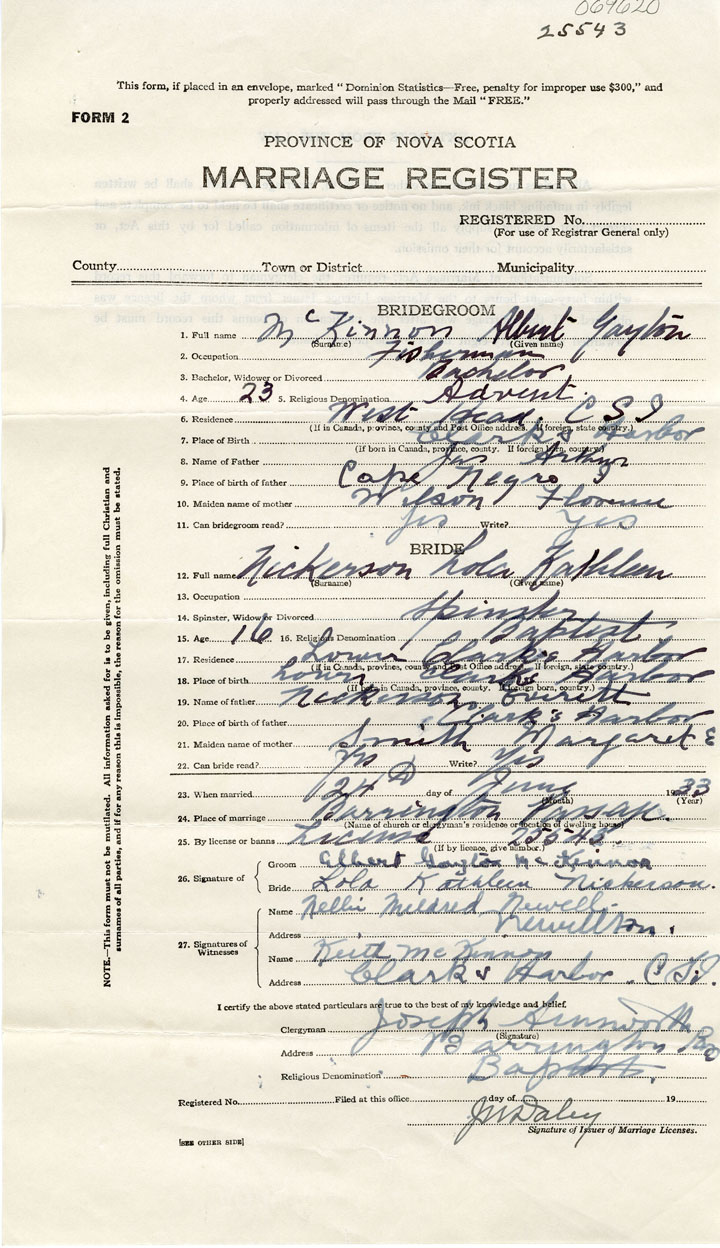 069620
25543
This form, if placed in an envelope, marked "Dominion Statistics—Free, penalty for improper use $300," and
properly addressed will pass through the Mail "FREE."
FORM 2
PROVINCE OF NOVA SCOTIA
MARRIAGE REGISTER
REGISTERED No.
(For use of Registrar General only)
County Town or District Municipality
BRIDEGROOM
1. Full name McKinnon Albert Gayton
(Surname) (Given name)
2. Occupation Fisherman
3. Bachelor, Widower or Divorced Bachelor
4. Age 23 5. Religious Denomination Advent.
6. Residence West Head. C S I
(If in Canada, province, county and Post Office address. If foreign, state country.)
7. Place of Birth Clark's Harbor
(If born in Canada, province, county. If foreign born, country.)
8. Name of Father Jas Arthur
9. Place of birth of father Cape Negro
10. Maiden name of mother Wilson Florence
11. Can bridegroom read? Yes Write? Yes
BRIDE
12. Full name Nickerson Lola Kathleen
(Surname) (Given name)
13. Occupation
14. Spinster, Widow or Divorced Spinster
15. Age 16 16. Religious Denomination Baptist
17. Residence Lower Clark's Harbor
(If in Canada, province, county and Post Office address. If foreign, state country.)
18. Place of birth Lower Clark's Harbor
(If born in Canada, province, county. If foreign born, country.)
19. Name of father Nickerson
20. Place of birth of father Clark's Harbor
21. Maiden name of mother Smith Margaret E
22. Can bride read? Yes Write? Yes
23. When married 24th day of June 1933
(Month) (Year)
24. Place of marriage Barrington Passage.
(Name of church or clergyman's residence or location of dwelling house)
25. By license or banns License 25543.
(If by licence, give number.)
26. Signature of Groom Albert Gayton McKinnon
Bride Lola Kathleen Nickerson.
27. Signatures of Witnesses Name Nellie Mildred Newell.
Address Newellton.
Name Keith McKinnon
Address Clark's Harbor C.S.I.
I certify the above stated particulars are true to the best of my knowledge and belief.
Clergyman Joseph
(Signature)
Address Barrington Pas
Religious Denomination Baptist.
Registered No. Filed at this office day of 19
Signature of Issuer of Marriage Licenses.
[SEE OTHER SIDE]
NOTE.—This form must not be mutilated. All information asked for is to be given, including full Christian and
surnames of all parties, and if for any reason this is impossible, the reason for the omission must be stated.